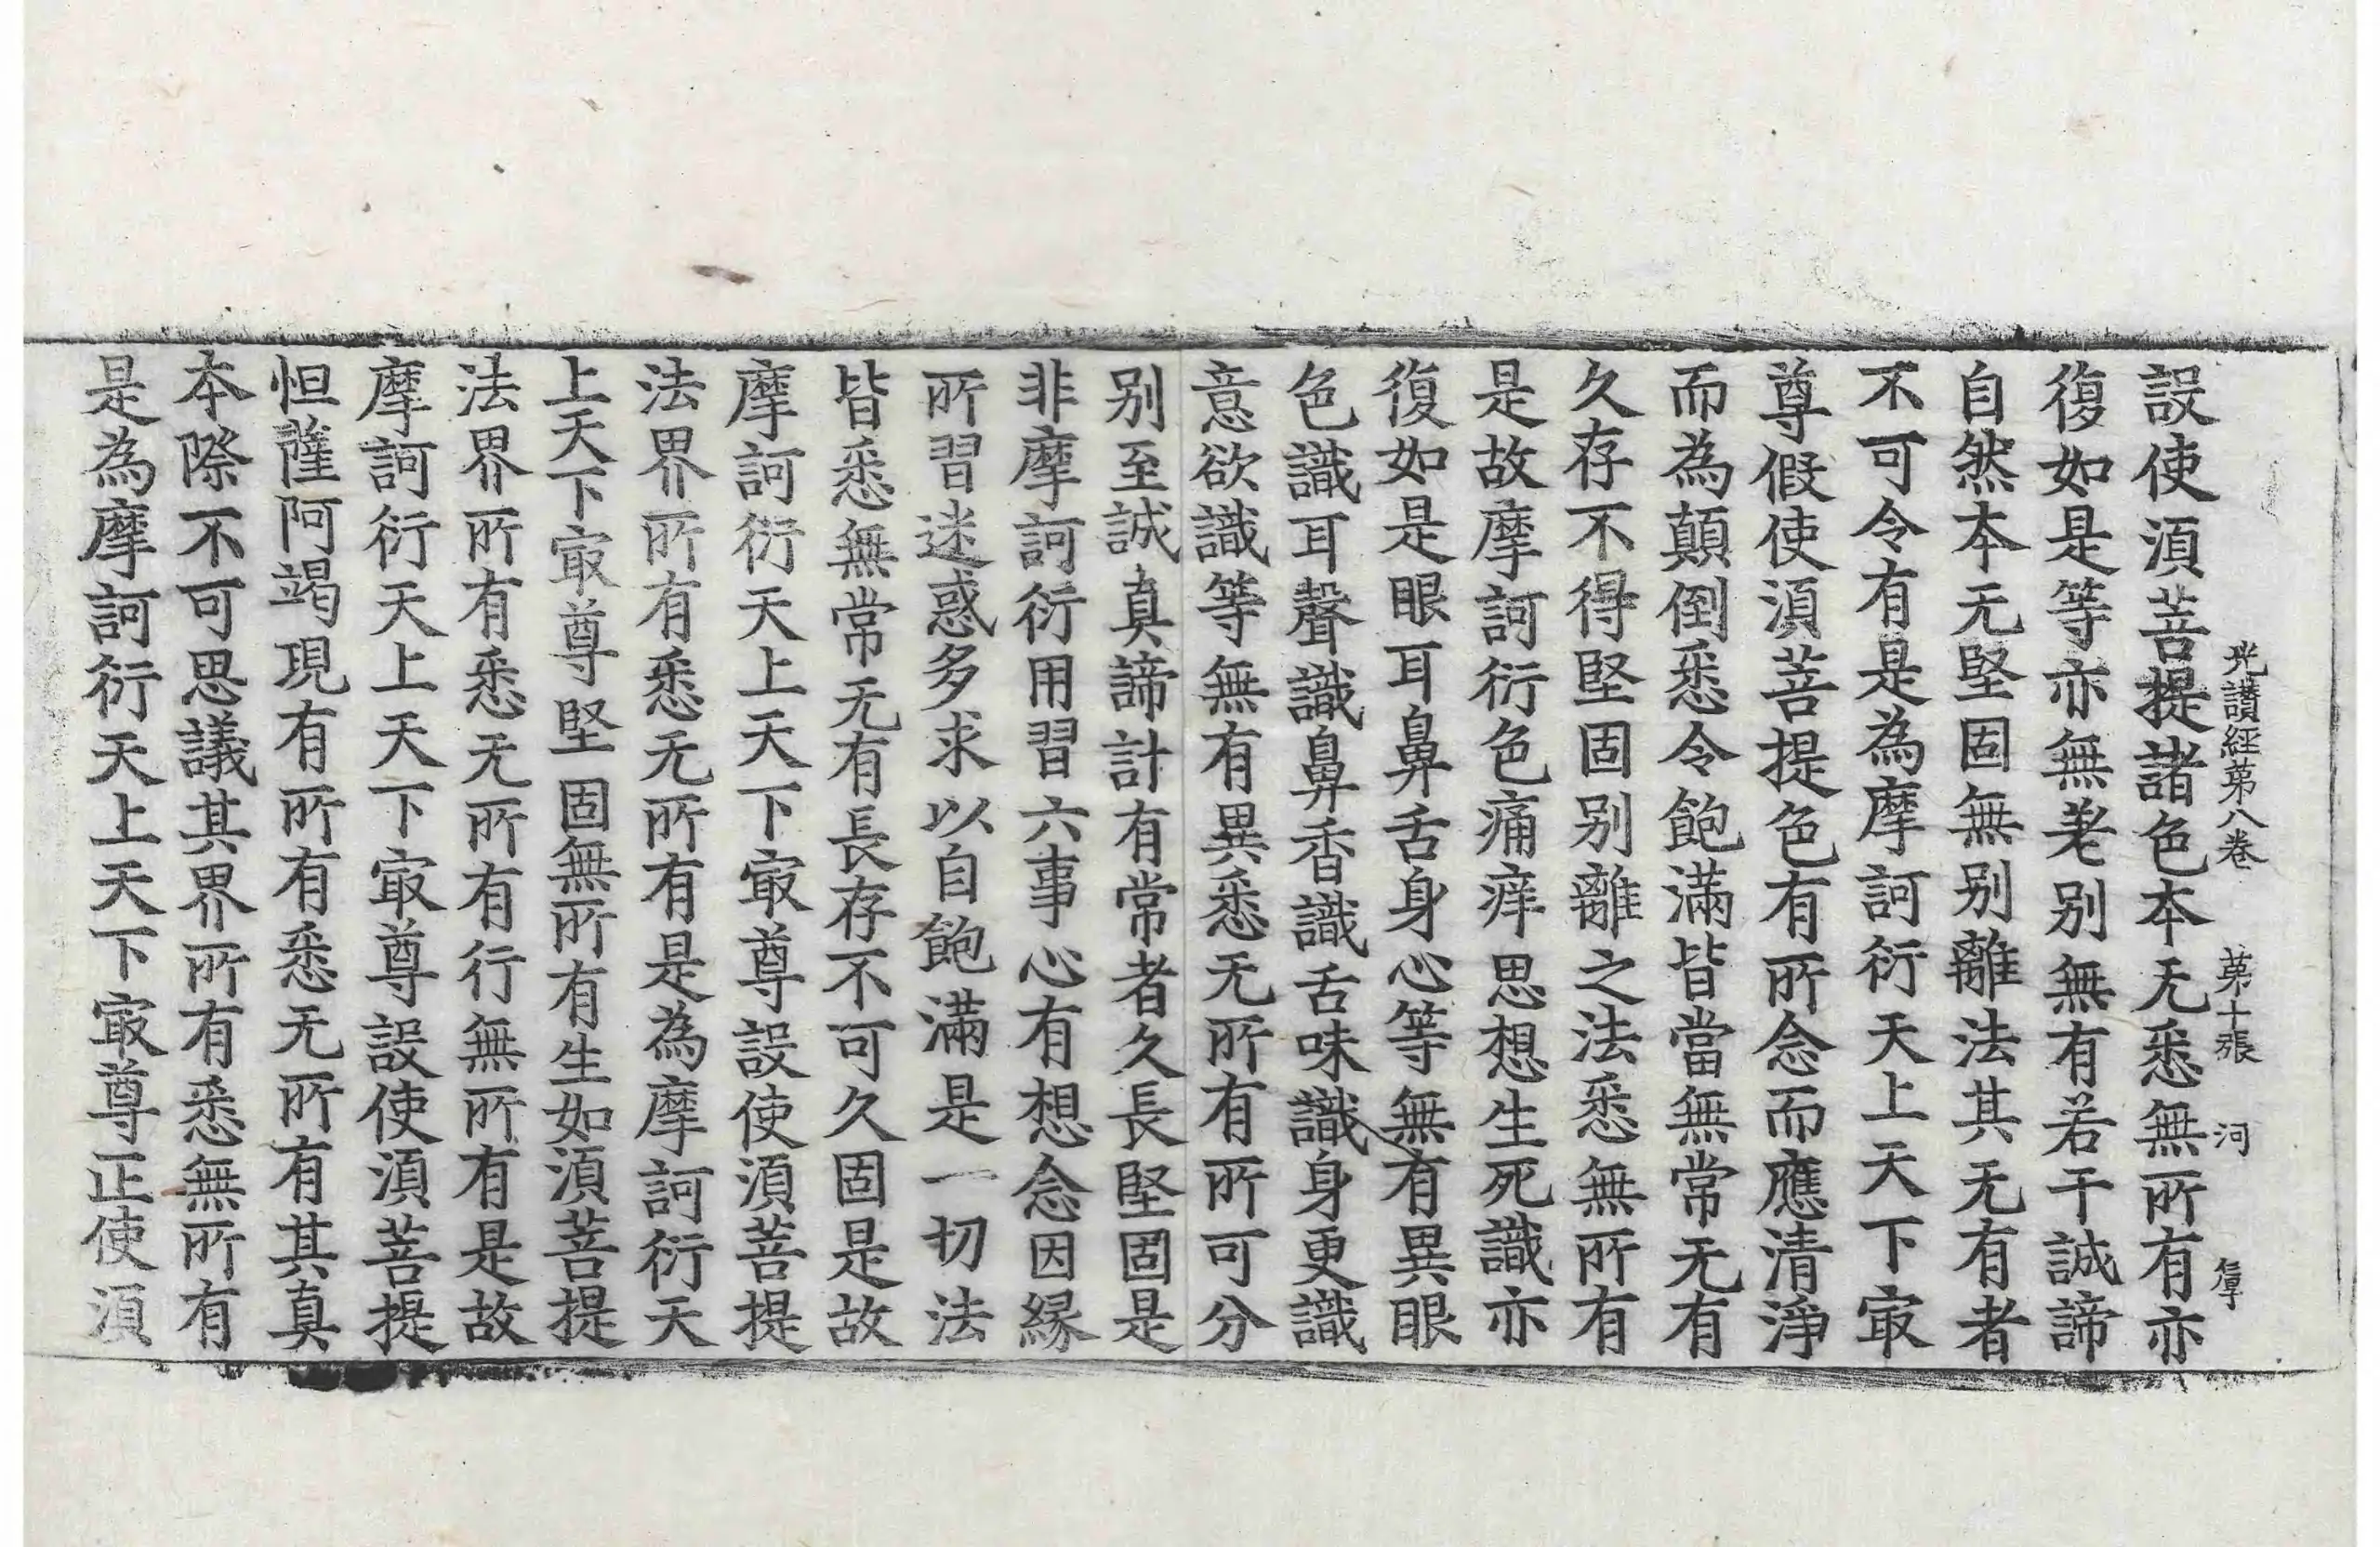 光讃経苐八卷 苐十張 河
設使湏菩提諸色本无悉無所有亦
復如是等亦無差别無有若干誠諦
自然本无堅固無别離法其无有者
不可令有是為摩訶衍天上天下㝡
尊假使湏菩提色有所念而應清淨
而為顛倒悉令飽滿皆當無常无有
久存不得堅固别離之法悉無所有
是故摩訶衍色痛痒思想生死識亦
復如是眼耳鼻舌身心等無有異眼
色識耳聲識鼻香識舌味識身更識
意欲識等無有異悉无所有所可分
别至誠真諦計有常者久長堅固是
非摩訶衍用習六事心有想念因縁
所習迷惑多求以自飽滿是一切法
皆悉無常无有長存不可久固是故
摩訶衍天上天下㝡尊設使湏菩提
法界所有悉无所有是為摩訶衍天
上天下㝡尊堅固無所有生如湏菩提
法界所有悉无所有行無所有是故
摩訶衍天上天下㝡尊設使湏菩提
怛薩阿竭現有所有悉无所有其真
本際不可思議其界所有悉無所有
是為摩訶衍天上天下㝡尊正使湏